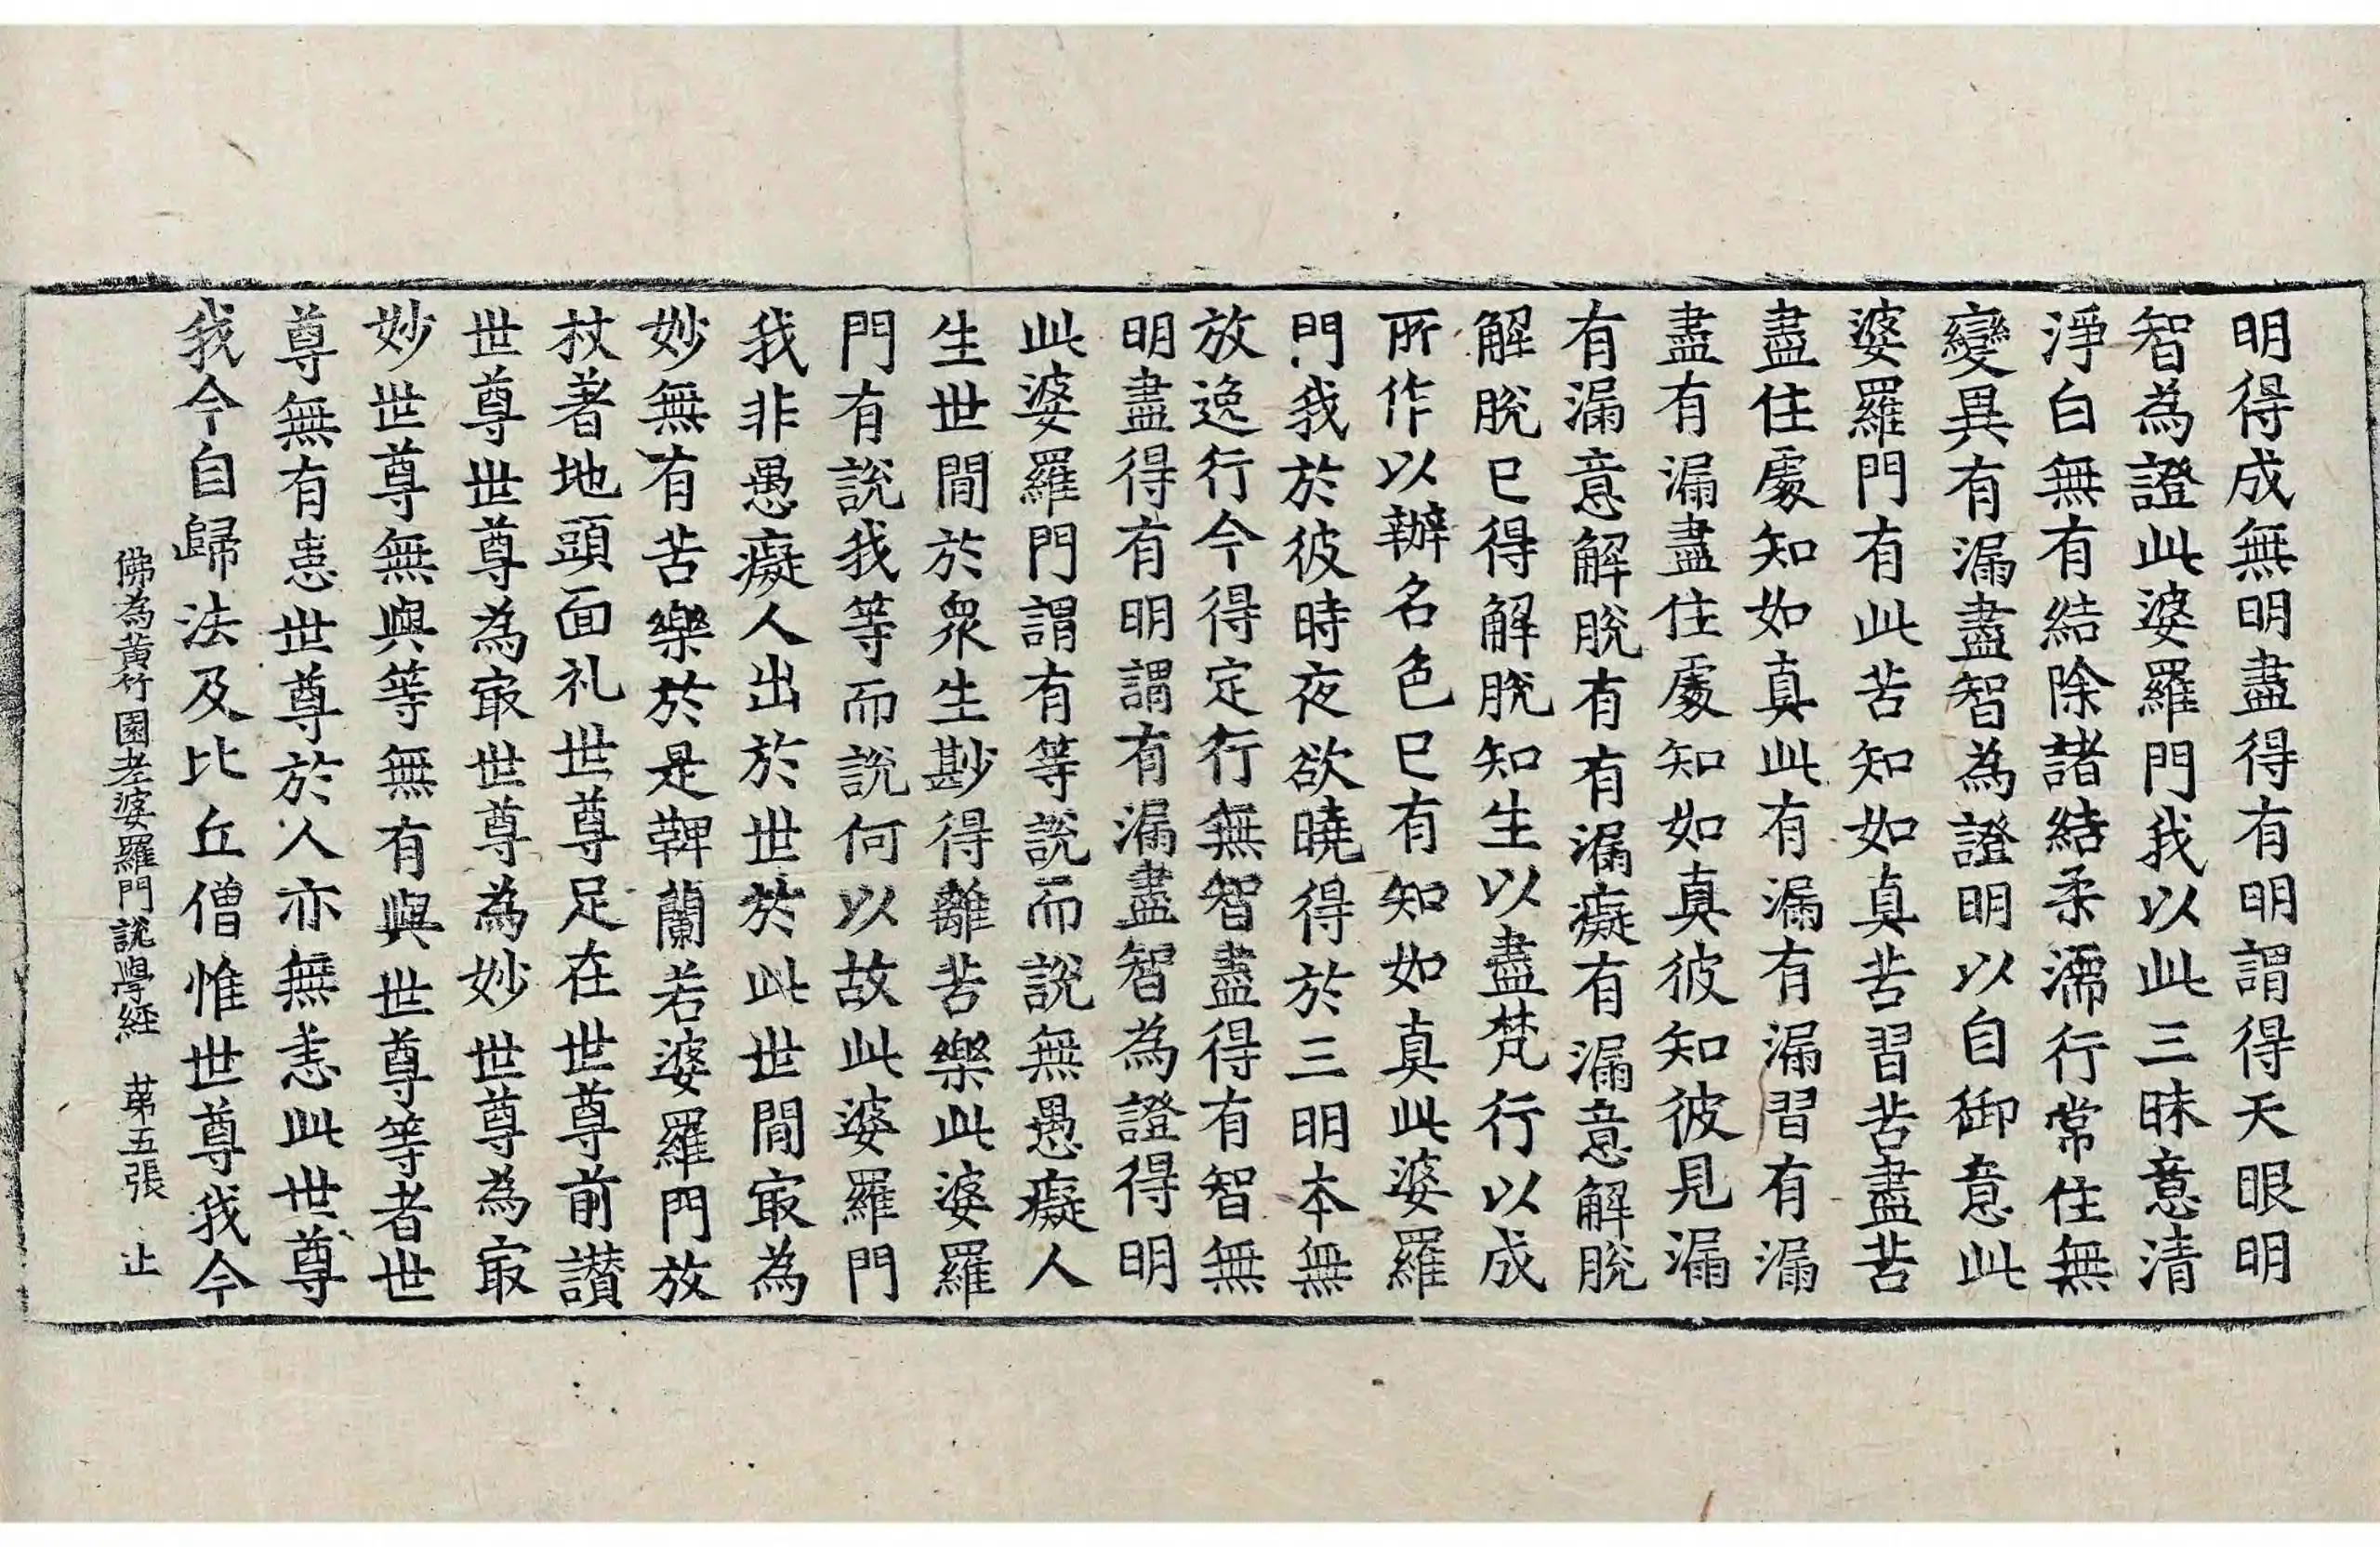 明得成無明盡得有明謂得天眼明
智為證此婆羅門我以此三昧意清
淨白無有結除諸結柔濡行常住無
變異有漏盡智為證明以自御意此
婆羅門有此苦知如真苦習苦盡苦
盡住處知如真此有漏有漏習有漏
盡有漏盡住處知如真彼知彼見漏
有漏意解脫有有漏癡有漏意解脫
解脫已得解脫知生以盡梵行以成
所作以辦名色已有知如真此婆羅
門我於彼時夜欲曉得於三明本無
放逸行今得定行無智盡得有智無
明盡得有明謂有漏盡智為證得明
此婆羅門謂有等說而說無愚癡人
生世間於眾生尠得離苦樂此婆羅
門有說我等而說何以故此婆羅門
我非愚癡人出於世於此世間㝡為
妙無有苦樂於是鞞蘭若婆羅門放
杖著地頭面礼世尊足在世尊前讃
世尊世尊為㝡世尊為妙世尊為㝡
妙世尊無與等無有與世尊等者世
尊無有恚世尊於人亦無恚此世尊
我今自歸法及比丘僧惟世尊我今
佛為黃竹園老婆羅門說學經 苐五張 止